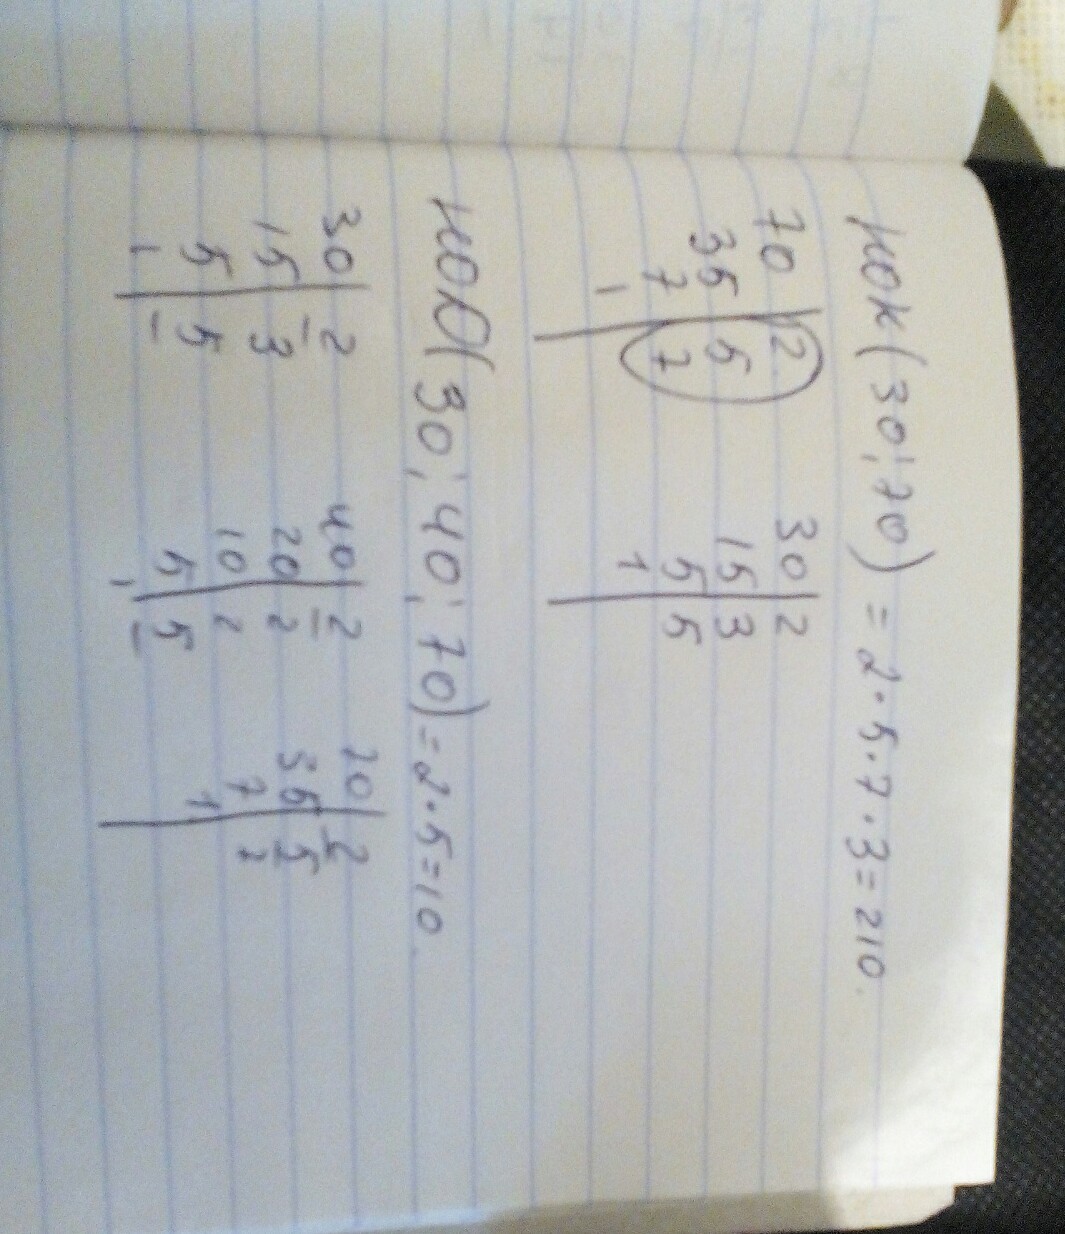 НОК(30;70) = 2·5·7·3=210.
70|2 30|2
35|5 15|3
7|7 5|5
1| 1|
НОД(30;40;70)=2·5=10.
30|2 40|2 70|2
15|3 20|2 35|5
5|5 10|2 7|7
1| 5|5 1|
1|